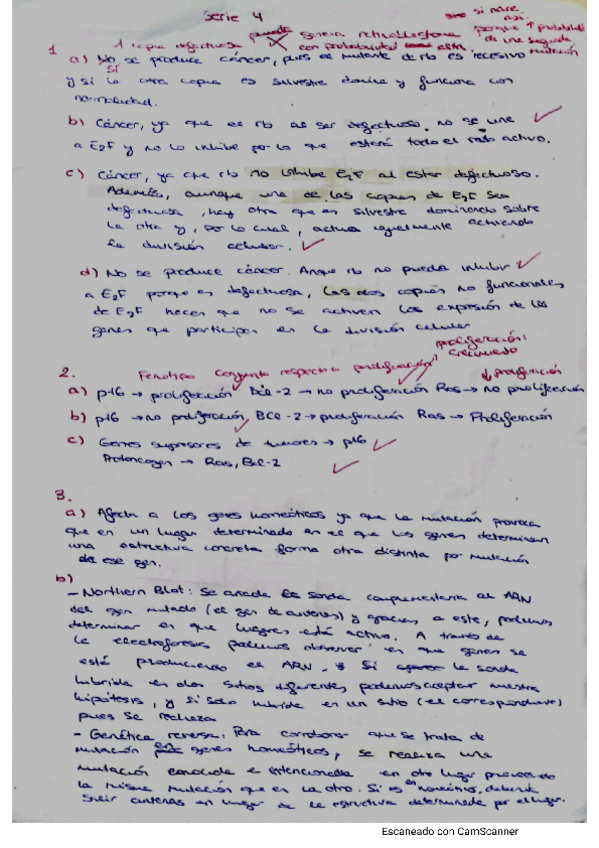 Serie 4
si nace así
porque ↑ probabilidad
de una segunda
mutación
1 copia defectuosa puede generar retinoblastoma
con probabilidad alta
1
a) No se produce cáncer, pues el mutante de rb es recesivo
y si la otra copia es silvestre domina y funciona con
normalidad.
b) Cáncer, ya que el rb al ser defectuoso, no se une
a E2F y no lo inhibe por lo que estará todo el rato activo.
c) Cáncer, ya que rb no inhibe E2F al estar defectuoso.
Además, aunque una de las copias de E2F sea
defectuosa, hay otra que es silvestre dominando sobre
la otra y, por lo cual, actua igualmente activando
la división celular.
d) No se produce cáncer. Anque rb no pueda inhibir
a E2F porque es defectuosa, las dos copias no funcionales
de E2F hacen que no se activen la expresión de los
genes que participan en la división celular
proliferación:
crecimiento
2. Fenotipo conjunto respecto a proliferación
↓ proliferación
a) p16 → proliferación Bcl-2 → no proliferación Ras → no proliferación
b) p16 → no proliferación, BCl-2 → proliferación Ras → Proliferación
c) Genes supresores de tumores → p16
Protoncogen → Ras, Bcl-2
3.
a) Afecta a los genes homeóticos ya que la mutación provoca
que en un lugar determinado en el que los genes determinan
una estructura concreta forma otra distinta por mutación
de ese gen.
b)
- Northern Blot: Se añade la sonda complementaria al ARN
del gen mutado (el gen de antenas) y gracias a este, podemos
determinar en que lugares está activo. A través de
la electroforesis podemos observar en que genes se
está produciendo el ARN. Si la sonda
hibrida en dos sitios diferentes, podemos aceptar nuestra
hipótesis, y si solo hibride en un sitio (el correspondiente)
pues se rechaza
- Genética reversa: Para corroborar que se trata de
mutación en genes homeóticos, se realiza una
mutación conocida e intencionada en otro lugar provocando
la misma mutación que en la otro. Si es en homeóticos, debería
salir antenas en lugar de la estructura determinada por el lugar.
Escaneado con CamScanner